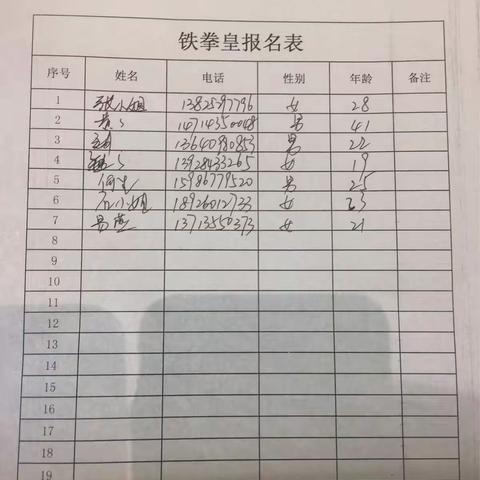 铁拳皇报名表
序号 姓名 电话 性别 年龄 备注
1 张小姐 13825297796 女 28
2 14714350048 男 41
3 13640980853 男 22
4 13928433265 女 19
5 何生 15986779520 男 25
6 石小姐 18926012733 女 23
7 易燕 13713550373 女 21
8
9
10
11
12
13
14
15
16
17
18
19